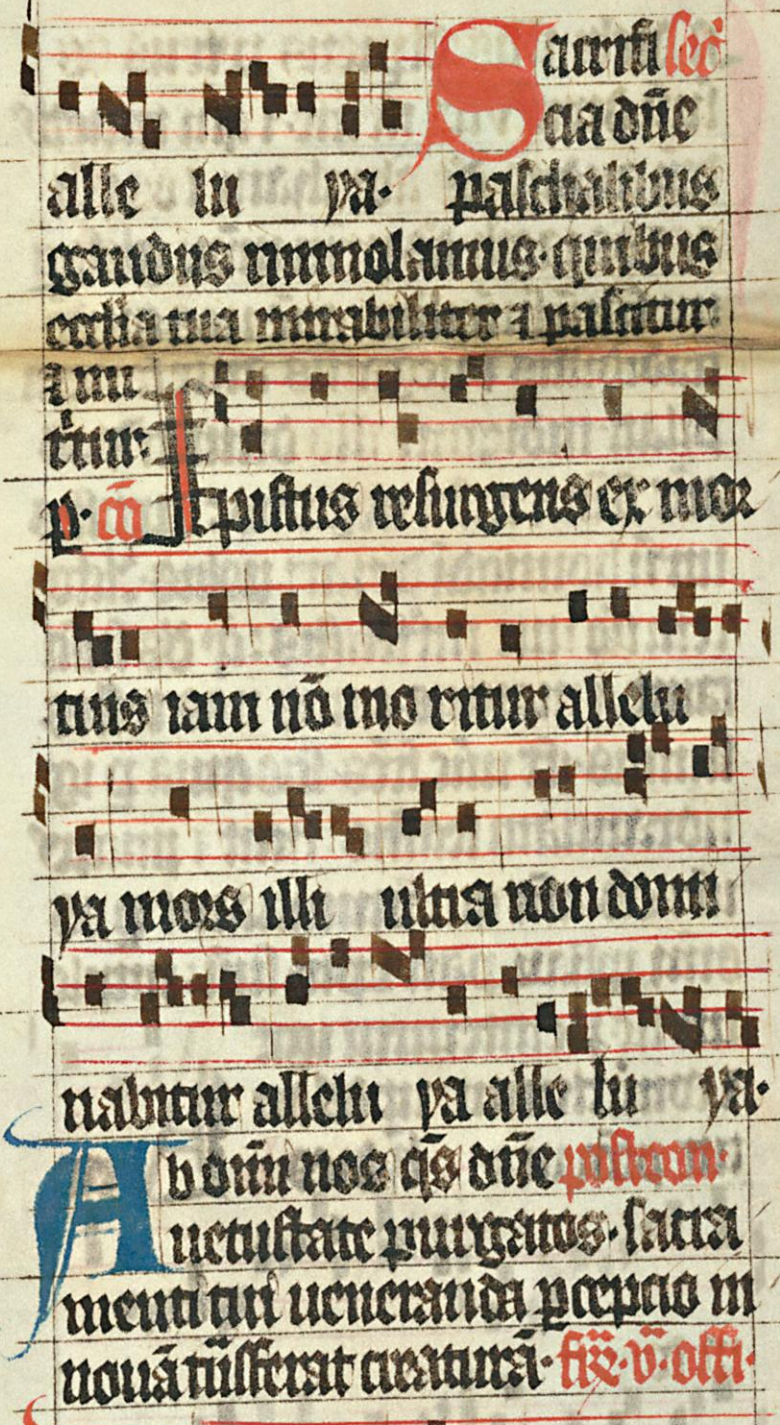 Sacrifi secͣ
cia dn̄e
alle lu ya. paschalibus
gaudiis immolamus. quibus
ecclia tua mirabiliter ⁊ pascitur
⁊ nu
tͥtur.
p. cō Xpistus resurgens ex mor
tuis iam nō mo ritur allelu
ya mors illi ultra non domi
nabitur allelu ya alle lu ya.
Ab om̄i nos qs̄ dn̄e postcon.
uetustate purgatos. sacra
menti tui ueneranda ꝑcepcio in
nouā tn̄sferat creaturā. fi͞r. v͞. offi.